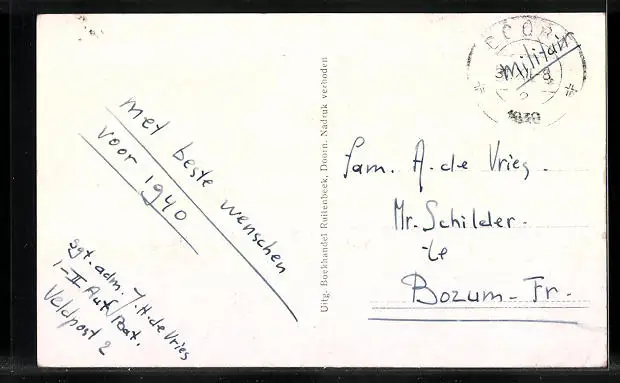 met beste wenschen
voor 1940
Sgt. adm. J. H. de Vries
Veldpost 2
Uitg. Boekhandel Ruitenbeek, Doorn. Nadruk verboden
Militair
1939
Fam. A. de Vries.
Mr. Schilder.
te
Bozum - Fr.